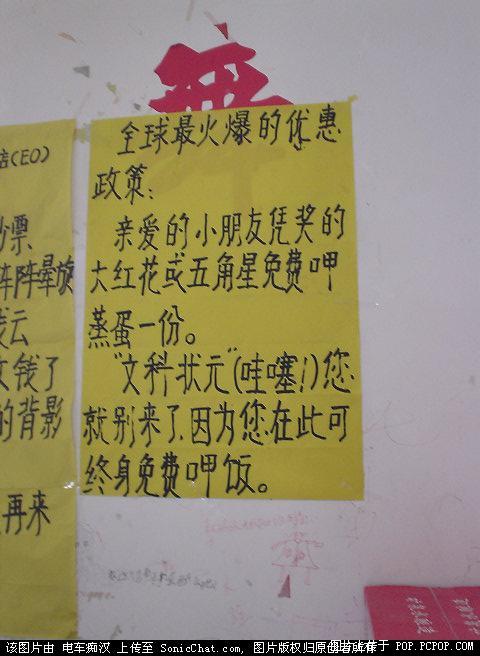 全球最火爆的优惠
政策：
亲爱的小朋友凭奖的
大红花或五角星免费呷
蒸蛋一份。
“文科状元”(哇塞!)您
就别来了.因为您在此可
终身免费呷饭。
(EO)
票
阵阵晕旋
云
钱了
的背影
再来
该图片由 电车痴汉 上传至 SonicChat.com, 图片版权归原创者所有
POP.PCPOP.COM